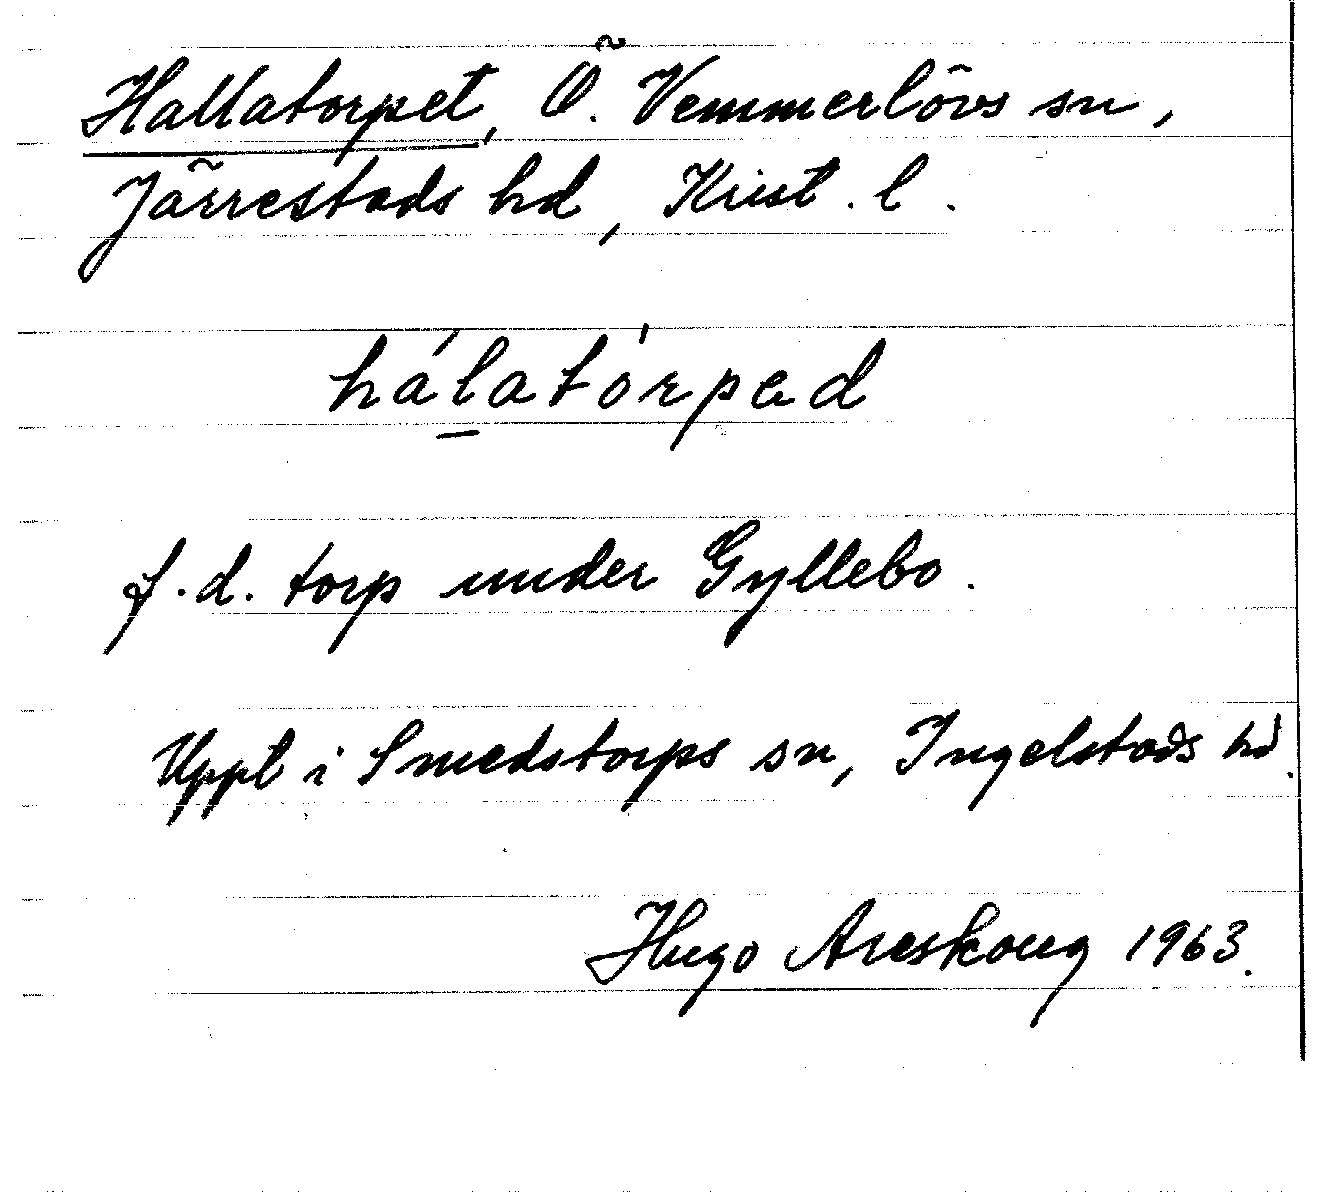 Hallatorpet, Ö. Vemmerlövs sn,
Järrestads hd, Krist. l.
hálatórpad
f.d. torp under Gyllebo.
Uppt i Smedstorps sn, Ingelstads hd.
Hugo Areskoug 1963.